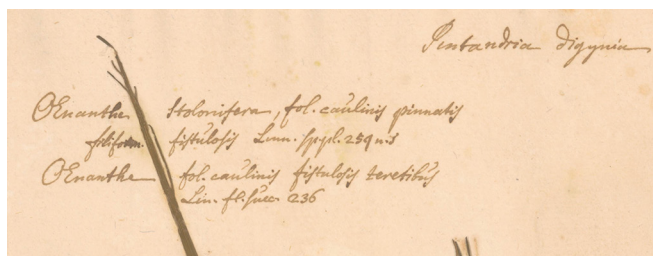 Pentandria digynia
OEnanthe stolonifera, fol. caulinis pinnatis
filiform. fistulosis Linn. sppl. 254 n. 3
OEnanthe fol. caulinis fistulosis teretibus
Lin. fl. suec. 236